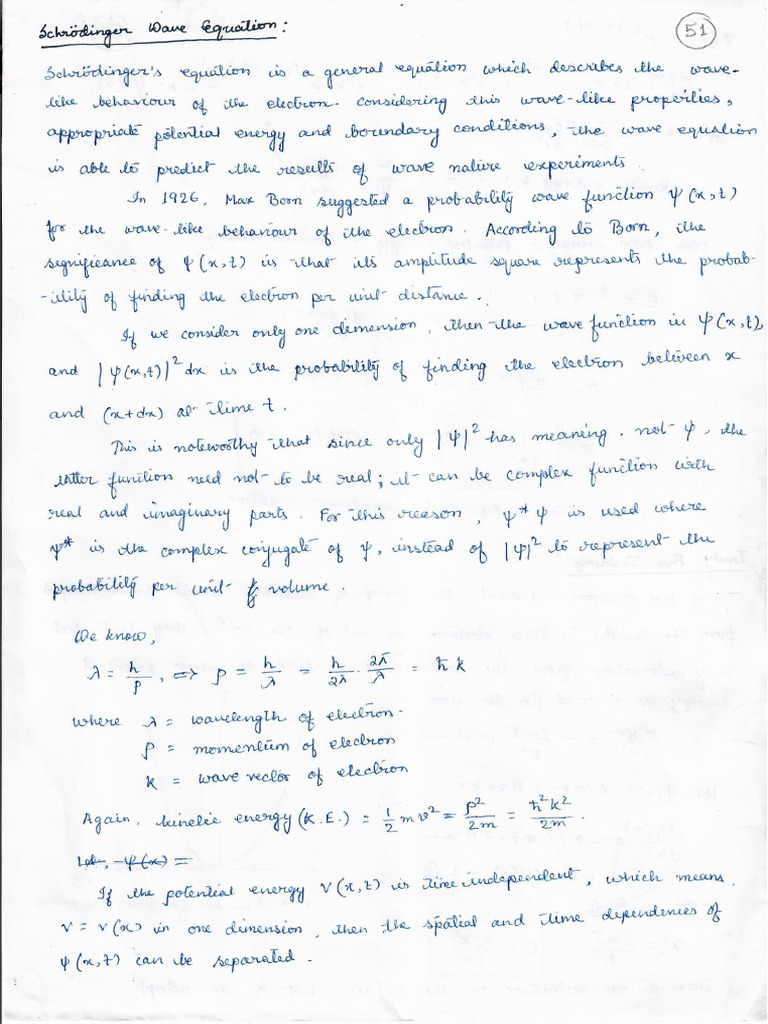 Schrödinger Wave Equation:
51
Schrödinger's equation is a general equation which describes the wave-
like behaviour of the electron. considering this wave-like properties,
appropriate potential energy and boundary conditions, the wave equation
is able to predict the results of wave native experiments.
In 1926, Max Born suggested a probability wave function ψ(x,t)
for the wave-like behaviour of the electron. According to Born, the
significance of ψ(x,t) is that its amplitude square represents the probab-
-ility of finding the electron per unit distance.
If we consider only one dimension, then the wave function is ψ(x,t),
and |ψ(x,t)|² dx is the probability of finding the electron between x
and (x+dx) at time t.
This is noteworthy that since only |ψ|² has meaning, not ψ, the
latter function need not to be real; it can be complex function with
real and imaginary parts. For this reason, ψ*ψ is used where
ψ* is the complex conjugate of ψ, instead of |ψ|² to represent the
probability per unit volume.
We know,
λ = h/p, ⇒ p = h/λ = h/2π · 2π/λ = ħk
where λ = wavelength of electron.
p = momentum of electron
k = wave vector of electron
Again, kinetic energy (K.E.) = 1/2 mv² = p²/2m = ħ²k²/2m.
Let, ψ(x) =
If the potential energy V(x,t) is time independent, which means
V = V(x) in one dimension, then the spatial and time dependencies of
ψ(x,t) can be separated.